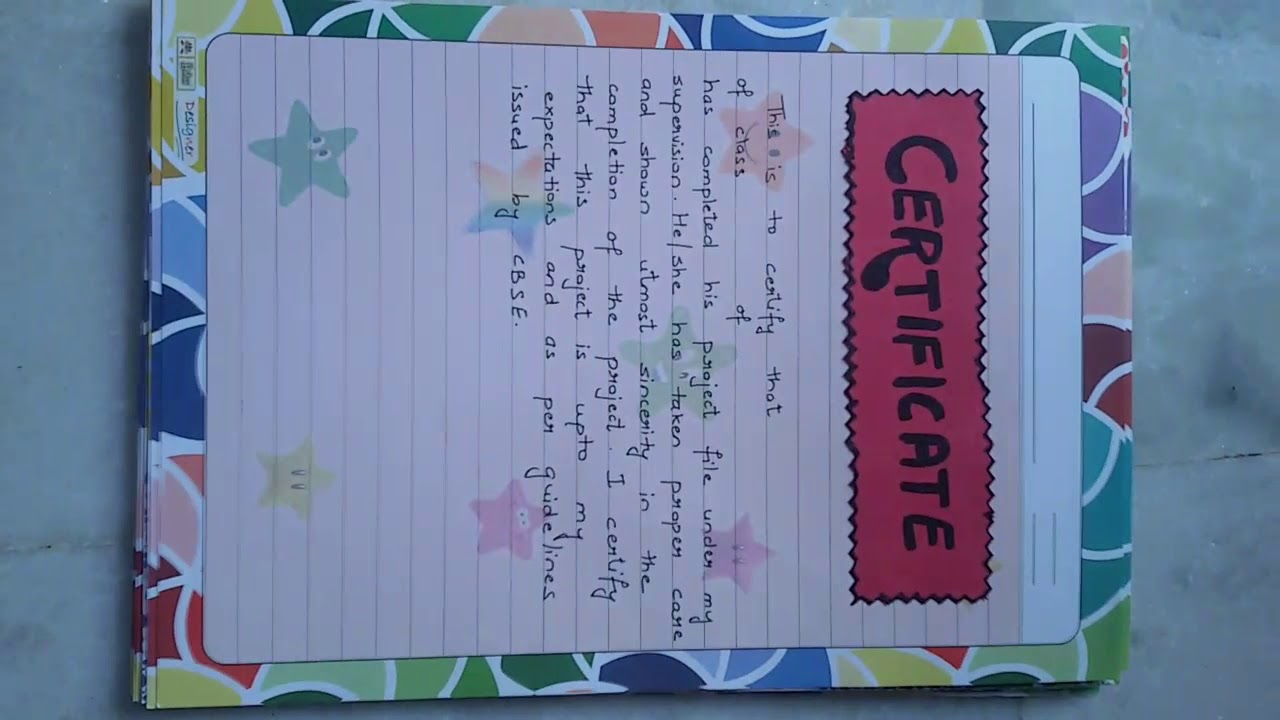 CERTIFICATE
This is to certify that
of class of
has completed his project file under my
supervision. He/she has taken proper care
and shown utmost sincerity in the
completion of the project. I certify
that this project is upto my
expectations and as per guidelines
issued by CBSE.
Designer